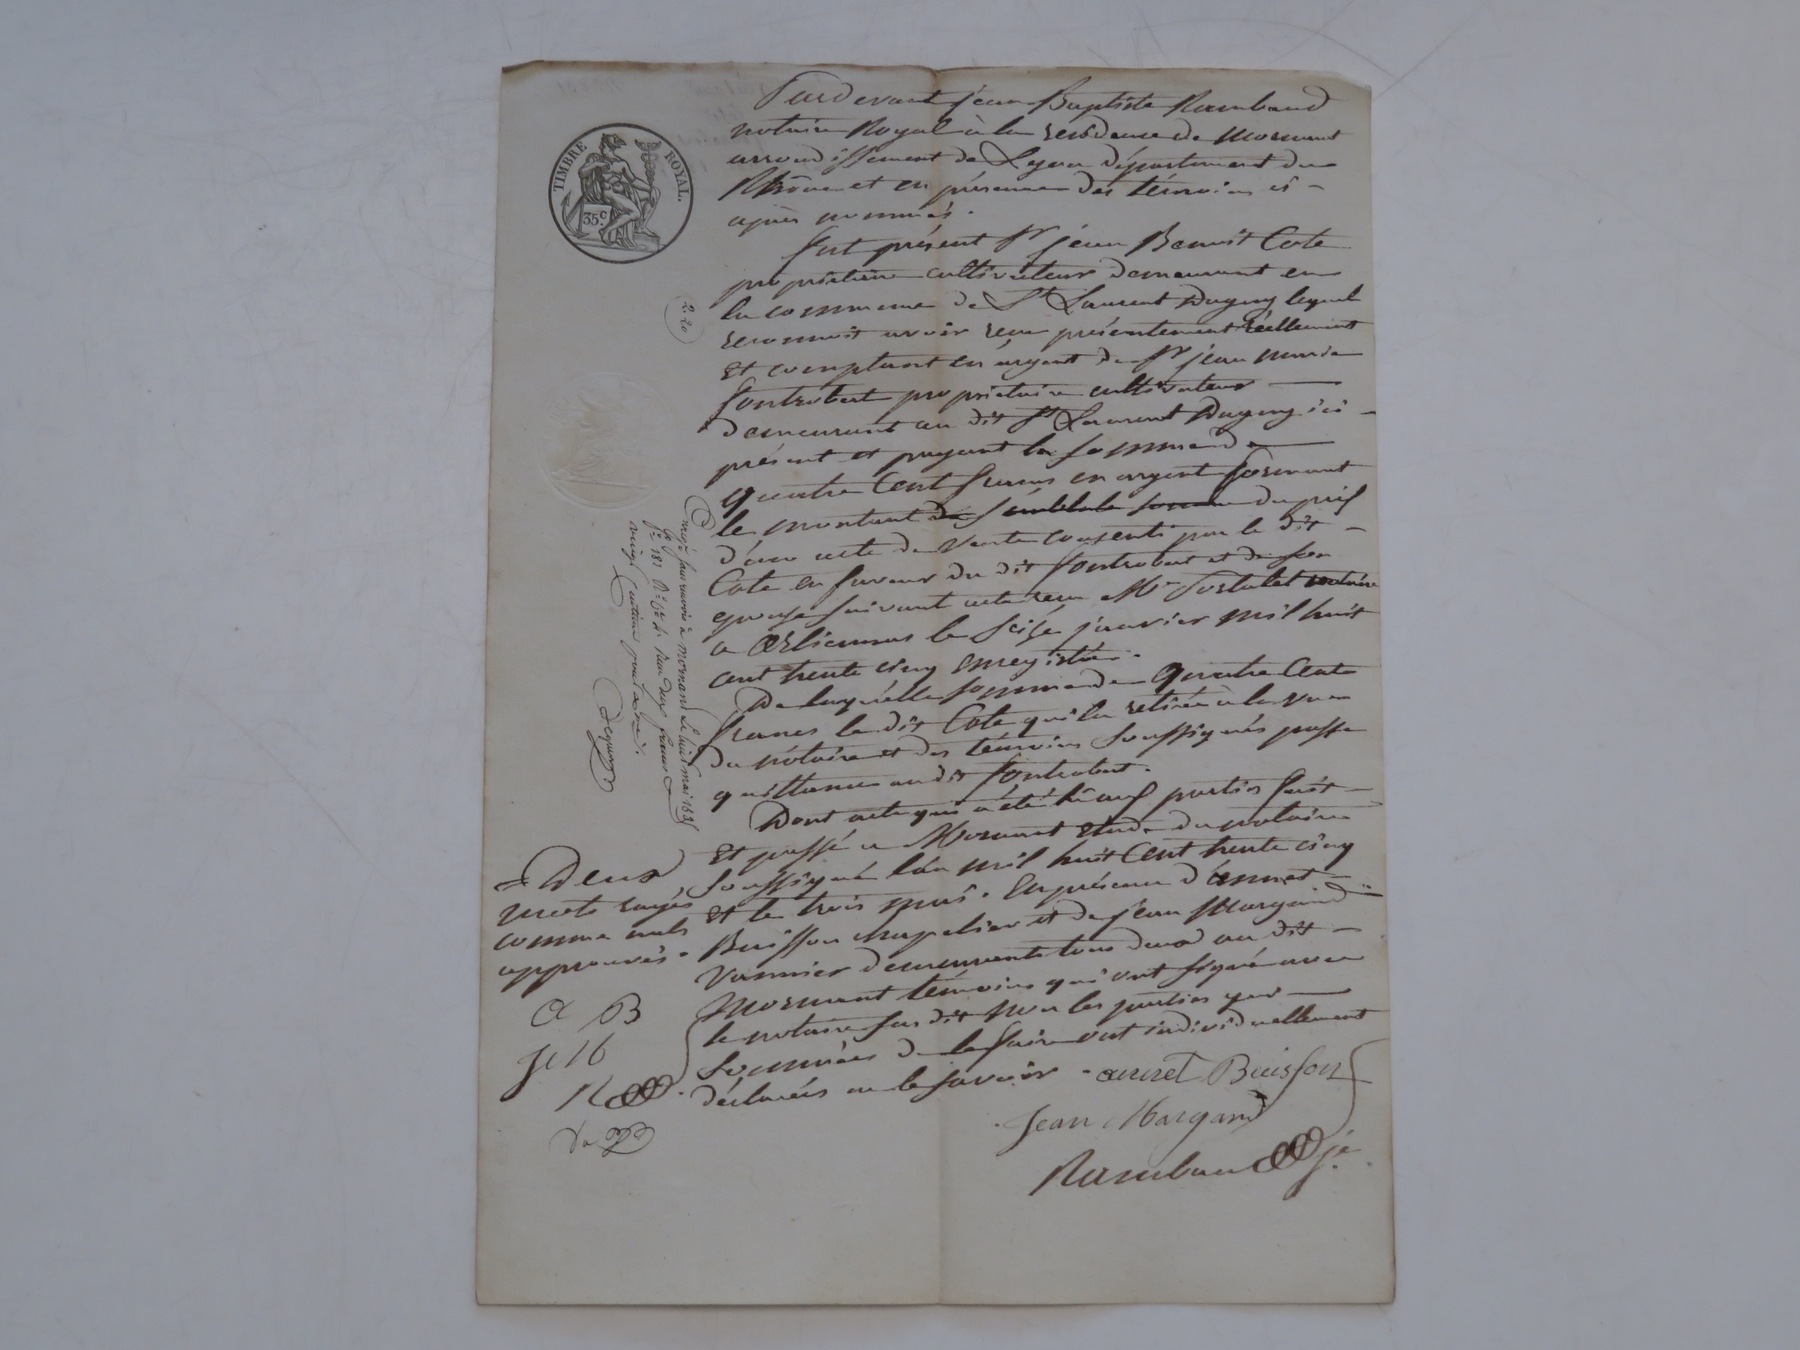 TIMBRE ROYAL.
35c
Pardevant jean Baptiste Rambaud
notaire Royal à la residence de Mornant
arrondissement de Lyon département du
Rhône et en présence des témoins ci-
après nommés.
fut présent Sr jean Benoit Cote
propriétaire cultivateur demeurant en
la commune de St Laurent Dagny lequel
reconnoit avoir reçu présentement réellement
et comptant en argent de Sr jean marie
fontrobert propriétaire cultivateur
demeurant au dit St Laurent Dagny ici
présent et payant la somme de
quatre Cent francs en argent formant
le montant du prix
d'un acte de Vente consenti par le dit
Cote en faveur du dit fontrobert et de son
epouse suivant acte reçu Me notaire
a Orlienas le seize janvier mil huit
cent trente cinq enregistré.
De laquelle somme de quatre Cent
francs le dit Cote qui la retirée à la vue
du notaire et des témoins soussignés passe
quittance au dit fontrobert.
Dont acte qui a été lu aux parties fait
Et passé a Mornant Etude du notaire
soussigné l'an mil huit Cent trente cinq
et le trois mai. En présence d'annet
Buisson chapelier et de jean Margand
Vannier demeurants tous deux au dit
Mornant témoins qui ont signé avec
le notaire sus dit non les parties qui
sommées de le faire ont individuellement
déclarés ne le savoir. annet Buisson
Jean Margand
Rambaud
2.20
Enregé à mornant le huit mai 1835
fo 181 Ro Reçu deux francs
vingt Centimes pour
Deux
mots rayés
comme nuls
approuvés.
a B
je M
R